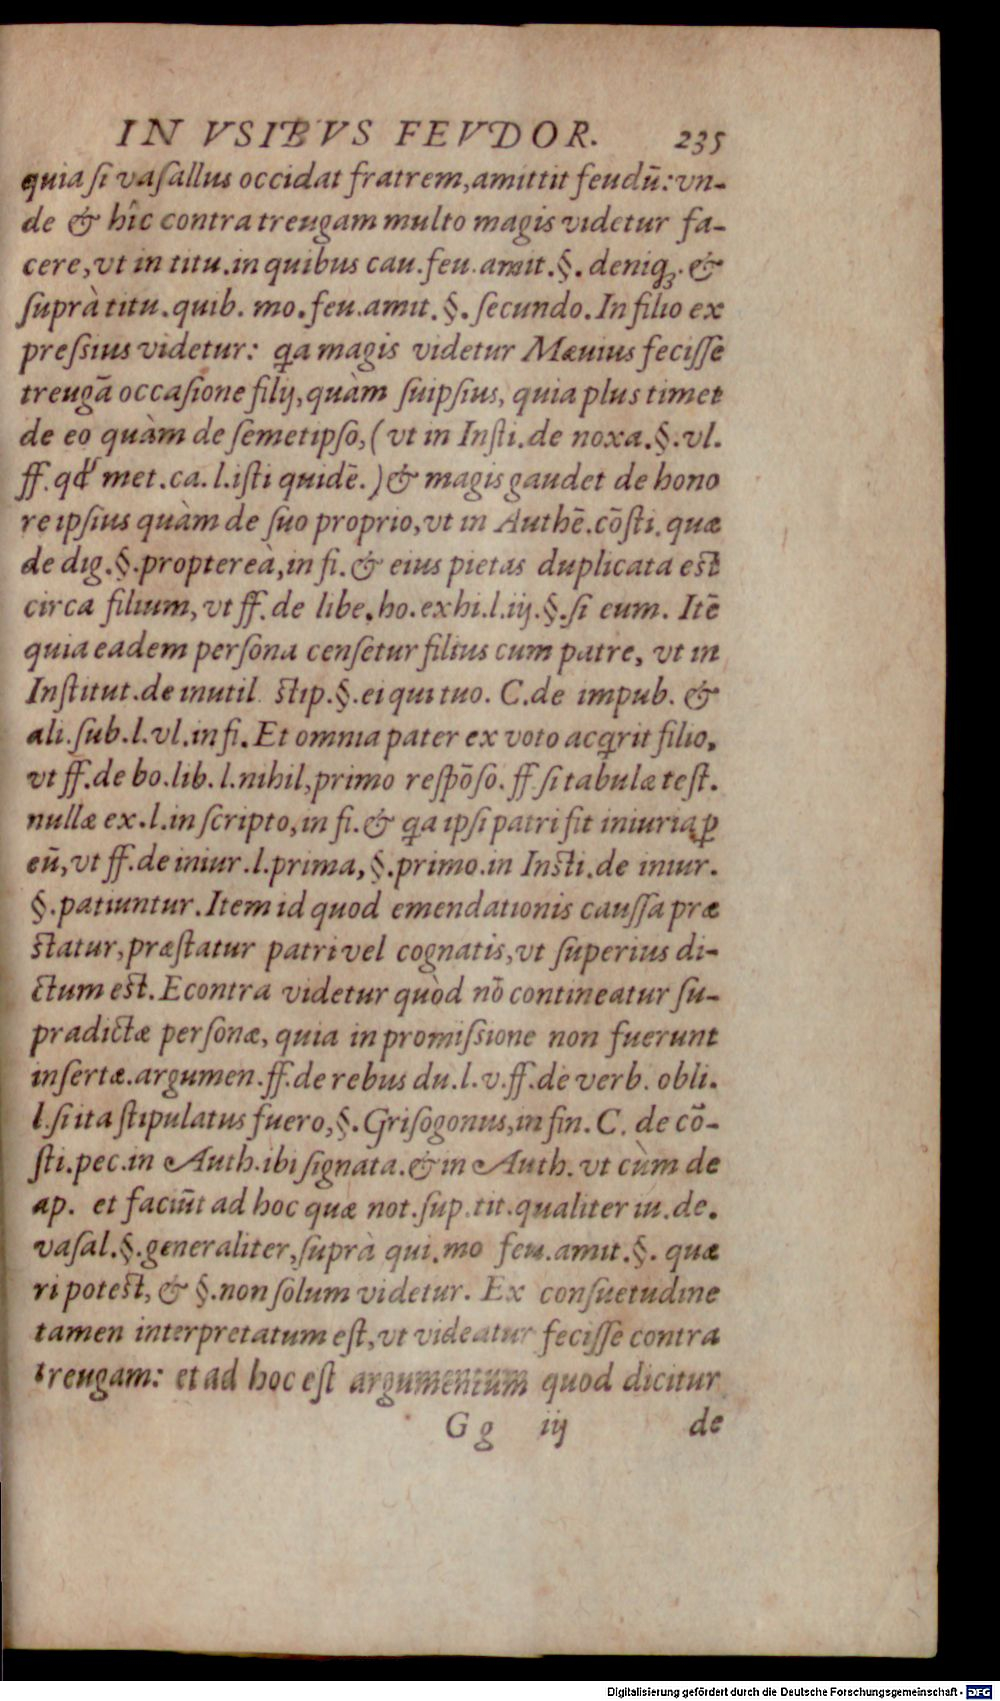 IN VSIBVS FEVDOR. 235
quia ſi vaſallus occidat fratrem, amittit feudũ: vn-
de & hîc contra treugam multo magis videtur fa-
cere, vt in titu. in quibus cau. feu. amit. §. deniq;. &
ſuprà titu. quib. mo. feu. amit. §. ſecundo. In filio ex
preſsius videtur: q̃a magis videtur Mæuius feciſſe
treugã occaſione filij, quàm ſuipſius, quia plus timet
de eo quàm de ſemetipſo, (vt in Inſti. de noxa. §. vl.
ff. qđ met. ca. l. iſti quidẽ.) & magis gaudet de hono
re ipſius quàm de ſuo proprio, vt in Authẽ. cõſti. quæ
de dig. §. proptereà, in fi. & eius pietas duplicata eſt
circa filium, vt ff. de libe. ho. exhi. l. iij. §. ſi eum. Itẽ
quia eadem perſona cenſetur filius cum patre, vt in
Inſtitut. de inutil. ſtip. §. ei qui tuo. C. de impub. &
ali. ſub. l. vl. in fi. Et omnia pater ex voto acq̃rit filio,
vt ff. de bo. lib. l. nihil, primo reſpõſo. ff. ſi tabulæ teſt.
nullæ ex. l. in ſcripto, in fi. & q̃a ipſi patri fit iniuria ꝑ
eũ, vt ff. de iniur. l. prima, §. primo. in Inſti. de iniur.
§. patiuntur. Item id quod emendationis cauſſa præ
ſtatur, præſtatur patri vel cognatis, vt ſuperius di-
ctum eſt. Econtra videtur quòd nõ contineatur ſu-
pradictæ perſonæ, quia in promiſsione non fuerunt
inſertæ. argumen. ff. de rebus du. l. v. ff. de verb. obli.
l. ſi ita ſtipulatus fuero, §. Griſogonus, in fin. C. de cõ-
ſti. pec. in Auth. ibi ſignata. & in Auth. vt cùm de
ap. et faciũt ad hoc quæ not. ſup. tit. qualiter iu. de.
vaſal. §. generaliter, ſuprà qui. mo feu. amit. §. quæ
ri poteſt, & §. non ſolum videtur. Ex conſuetudine
tamen interpretatum eſt, vt videatur feciſſe contra
treugam: et ad hoc eſt argumentum quod dicitur
G g iij de
Digitalisierung gefördert durch die Deutsche Forschungsgemeinschaft - DFG